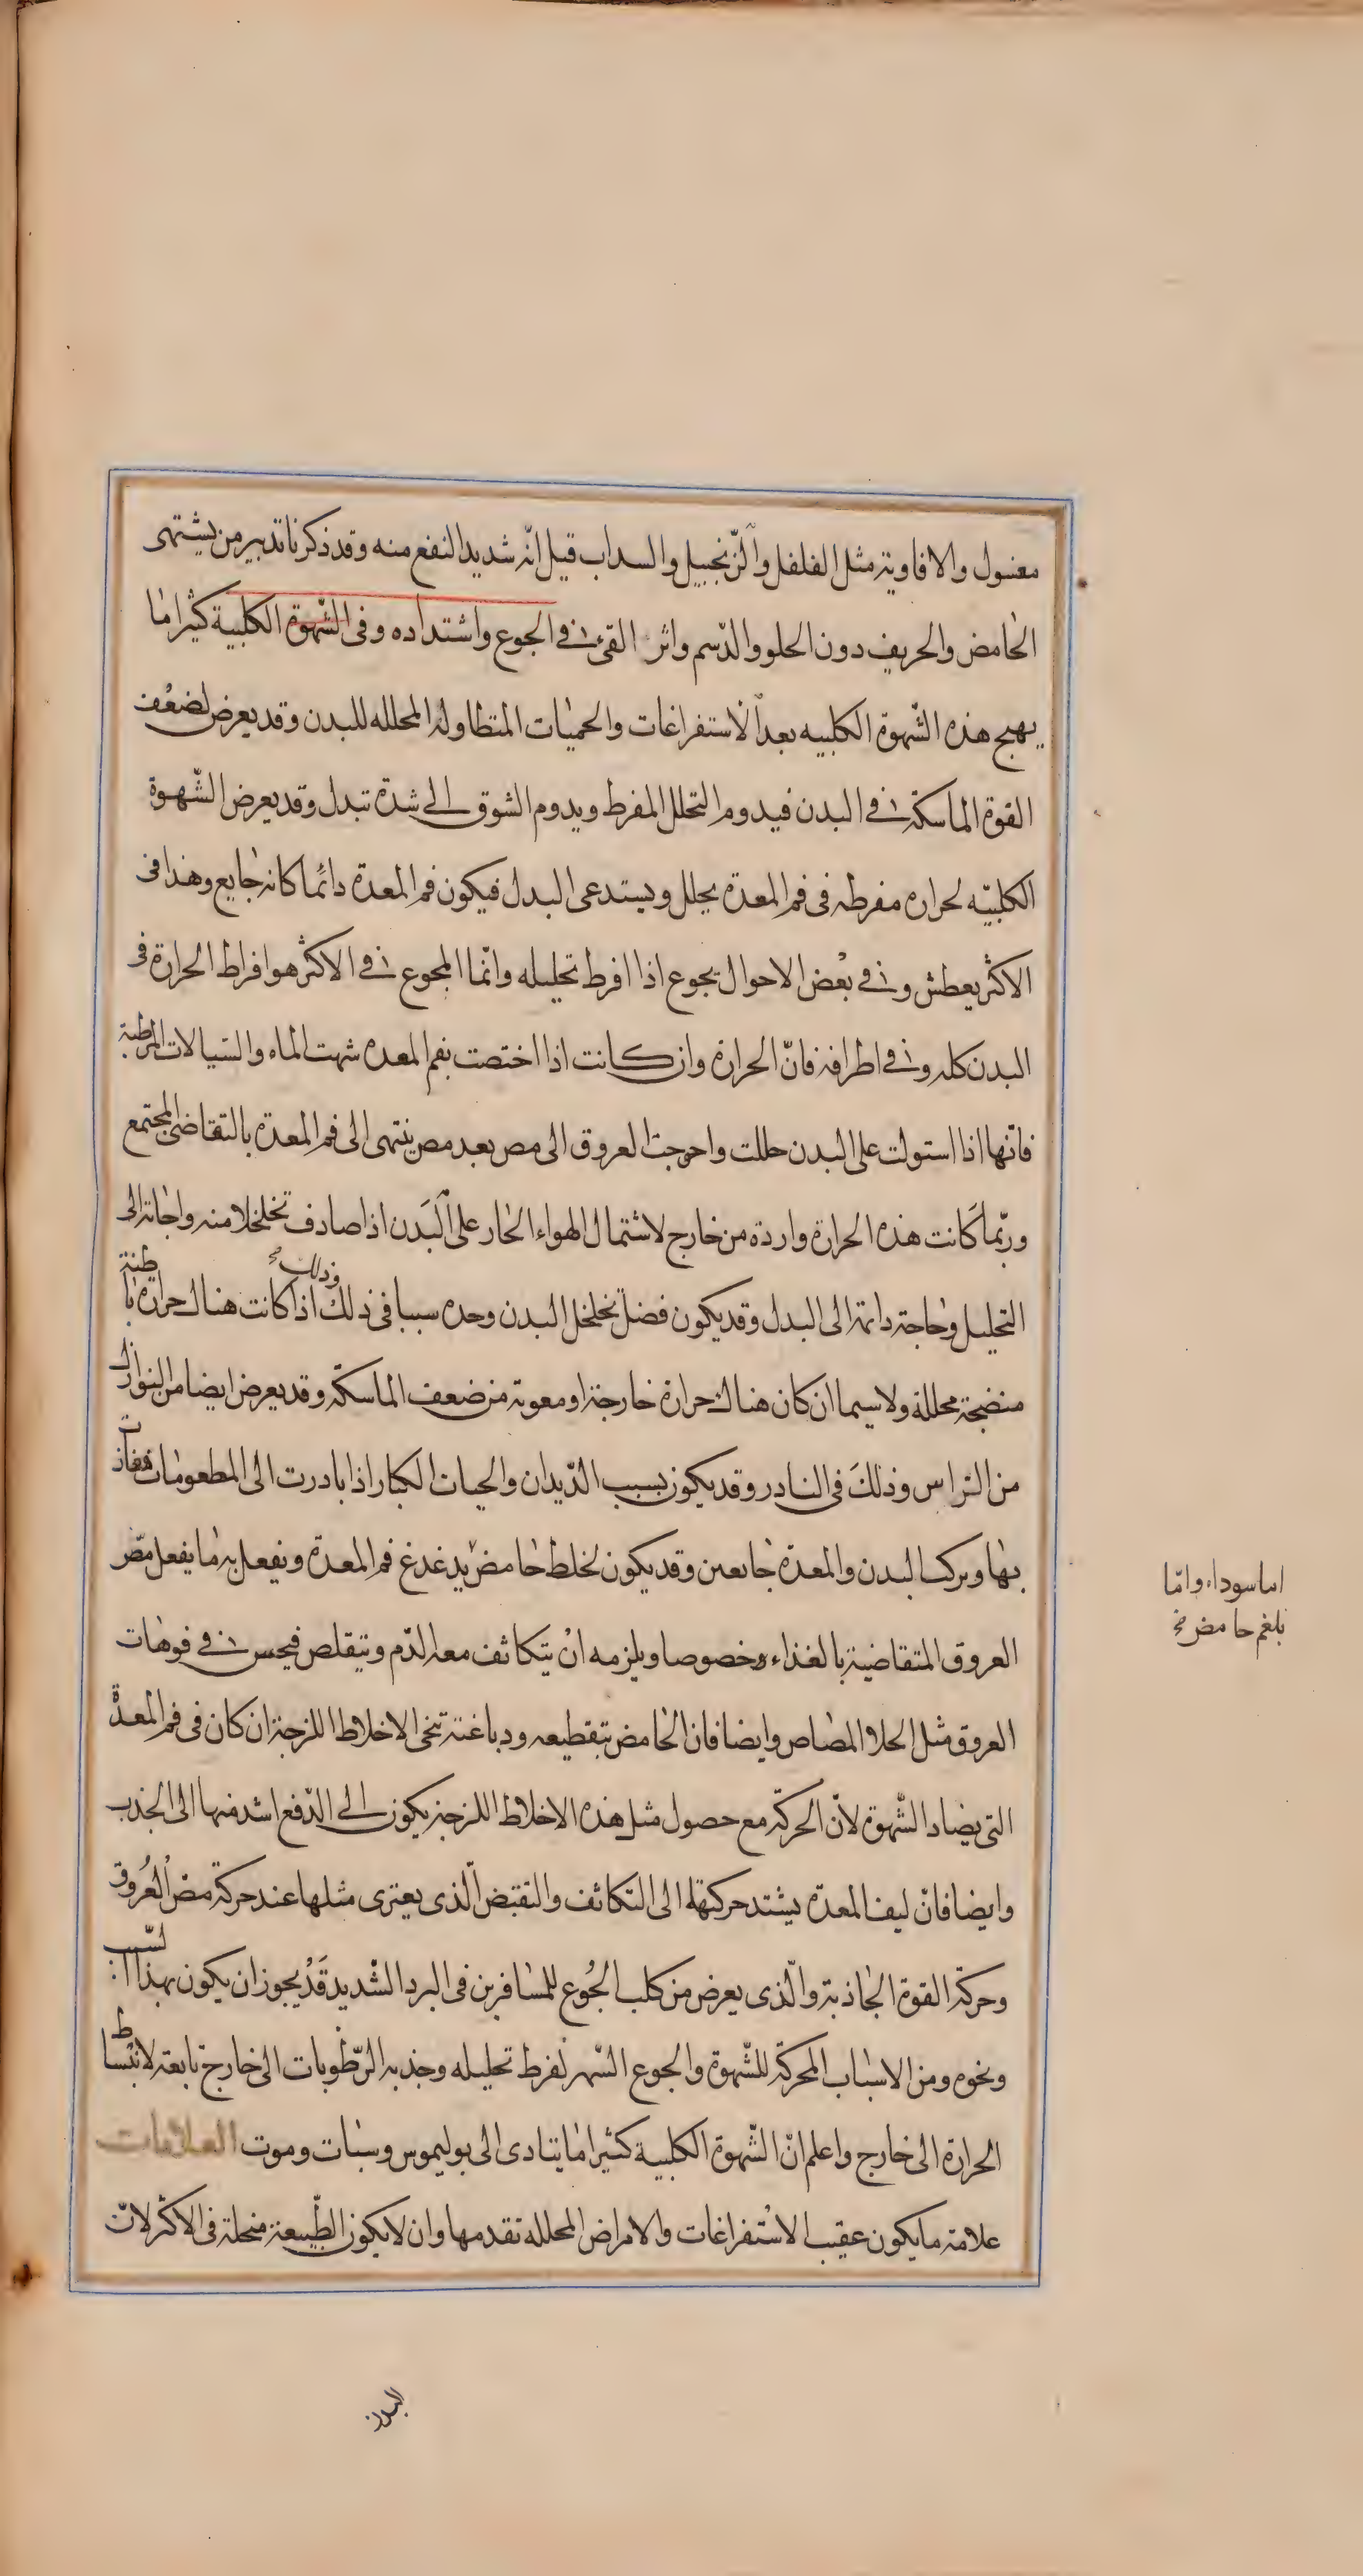 مغسول والافاوية مثل الفلفل والزّنجبيل والسداب قيل انّه شديد النفع منه وقد ذكرنا تدبير من يشتهى
الحامض والحريف دون الحلو والدّسم واثر القئ في الجوع واشتداده وفى الشّهوة الكلبية كثيرا ما
يهيج هذه الشّهوة الكلبيه بعد الاستفراغات والحميات المتطاولة المحلله للبدن وقد يعرض لضعف
القوة الماسكة في البدن فيدوم التحلل المفرط ويدوم الشوق الى شدة تبدل وقد يعرض الشّهوة
الكلبيّه لحراره مفرطه فى فم المعدة يحلل ويستدعى البدل فيكون فم المعدة دائما كانه جايع وهذا فى
الاكثر يعطش وفي بعض الاحوال يجوع اذا افرط تحليله وانّما المجوع في الاكثر هو افراط الحرارة فى
البدن كله وفي اطرافه فانّ الحرارة وان كانت اذا اختصت بفم المعده شهت الماء والسّيالات المرطبة
فانّها اذا استولت على البدن حللت واحوجت العروق الى مص بعد مص ينتهى الى فم المعدة بالتقاضى المجتمع
وربّما كانت هذه الحرارة واردة من خارج لاشتمال الهواء الحار على البدن اذا صادف تخلخلا منه واجابة الى
التحليل وحاجة دائمة الى البدل وقد يكون فضل تخلخل البدن وحده سببا فى ذلك وذلك اذا كانت هناك حرارة باطنة
منضجة محللة ولا سيما ان كان هناك حرارة خارجة او معونة من ضعف الماسكة وقد يعرض ايضا من النوازل
من الراس وذلك فى النادر وقد يكون بسبب الدّيدان والحيات الكبار اذا بادرت الى المطعومات ففازت
بها وتركت البدن والمعدة جايعين وقد يكون لخلط حامض يدغدغ فم المعدة ويفعل به ما يفعل مصّ
العروق المتقاضية بالغذاء وخصوصا ويلزمه ان يتكاثف معه الدّم ويتقلص فيحس في فوهات
العروق مثل الحلا المصاص وايضا فان الحامض بتقطيعه ودباغته تنحى الاخلاط اللزجة ان كان فى فم المعدة
التى يضاد الشّهوة لانّ الحركة مع حصول مثل هذه الاخلاط اللزجة يكون الى الدّفع اشد منها الى الجذب
وايضا فانّ ليف المعدة يشتد حركتها الى التكاثف والتقبّض الّذى يعترى مثلها عند حركة مصّ العروق
وحركة القوة الجاذبة والّذى يعرض من كلب الجوع للمسافرين فى البرد الشّديد قد يجوز ان يكون بهذا السّبب
ونحوه ومن الاسباب المحركة للشّهوة والجوع السّهر لفرط تحليله وجذبه الرّطوبات الى خارج تابعة لانبساط
الحرارة الى خارج واعلم انّ الشّهوة الكلبية كثيرا ما يتادى الى بوليموس وسبات وموت العلامات
علامة ما يكون عقيب الاستفراغات والامراض المحلله تقدمها وان لا يكون الطّبيعة منحلة فى الاكثر لانّ
اما سوداء وامّا
بلغم حامض
البدن